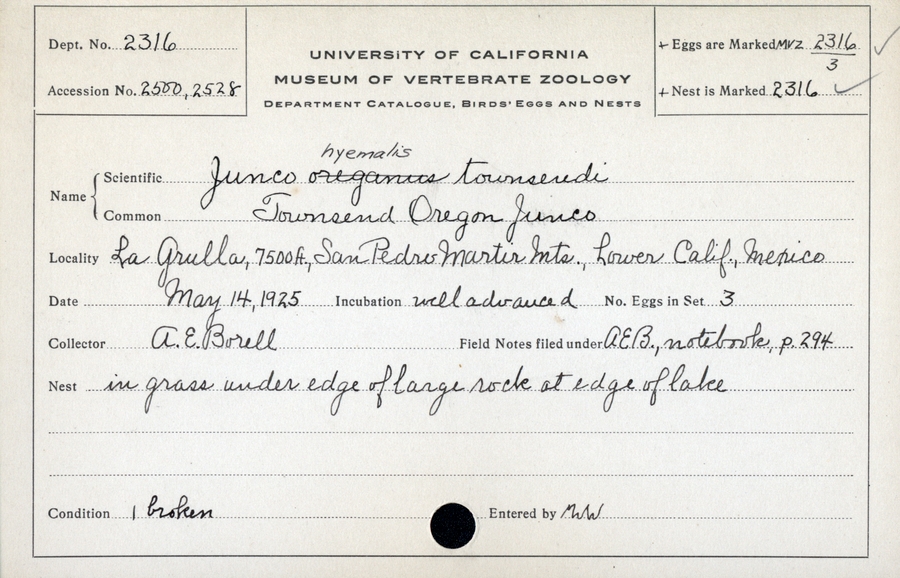 Dept. No. 2316
Accession No. 2500, 2528
UNIVERSITY OF CALIFORNIA
MUSEUM OF VERTEBRATE ZOOLOGY
DEPARTMENT CATALOGUE, BIRDS' EGGS AND NESTS
+ Eggs are Marked MVZ 2316/3 ✓
+ Nest is Marked 2316 ✓
hyemalis
Name { Scientific Junco oreganus townsendi
Common Townsend Oregon Junco
Locality La Grulla, 7500ft., San Pedro Martir Mts., Lower Calif., Mexico
Date May 14, 1925 Incubation well advanced No. Eggs in Set 3
Collector A. E. Borell Field Notes filed under A.E.B., notebook, p. 294
Nest in grass under edge of large rock at edge of lake
Condition 1 broken Entered by